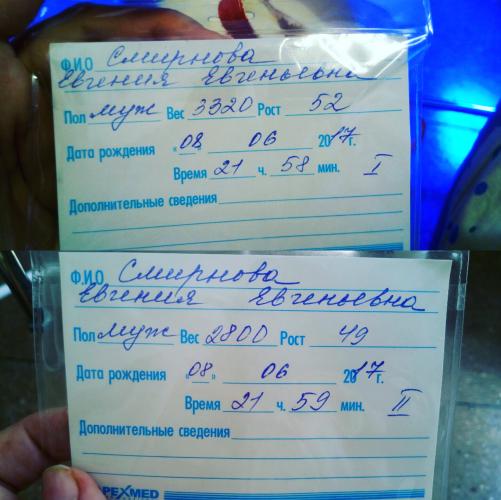 Ф.И.О Смирнова
Евгения Евгеньевна
Пол муж Вес 3320 Рост 52
Дата рождения «08 06 2017г.
Время 21 ч. 58 мин. I
Дополнительные сведения
Ф.И.О Смирнова
Евгения Евгеньевна
Пол муж Вес 2800 Рост 49
Дата рождения «08» 06 2017г.
Время 21 ч. 59 мин. II
Дополнительные сведения
PEXMED